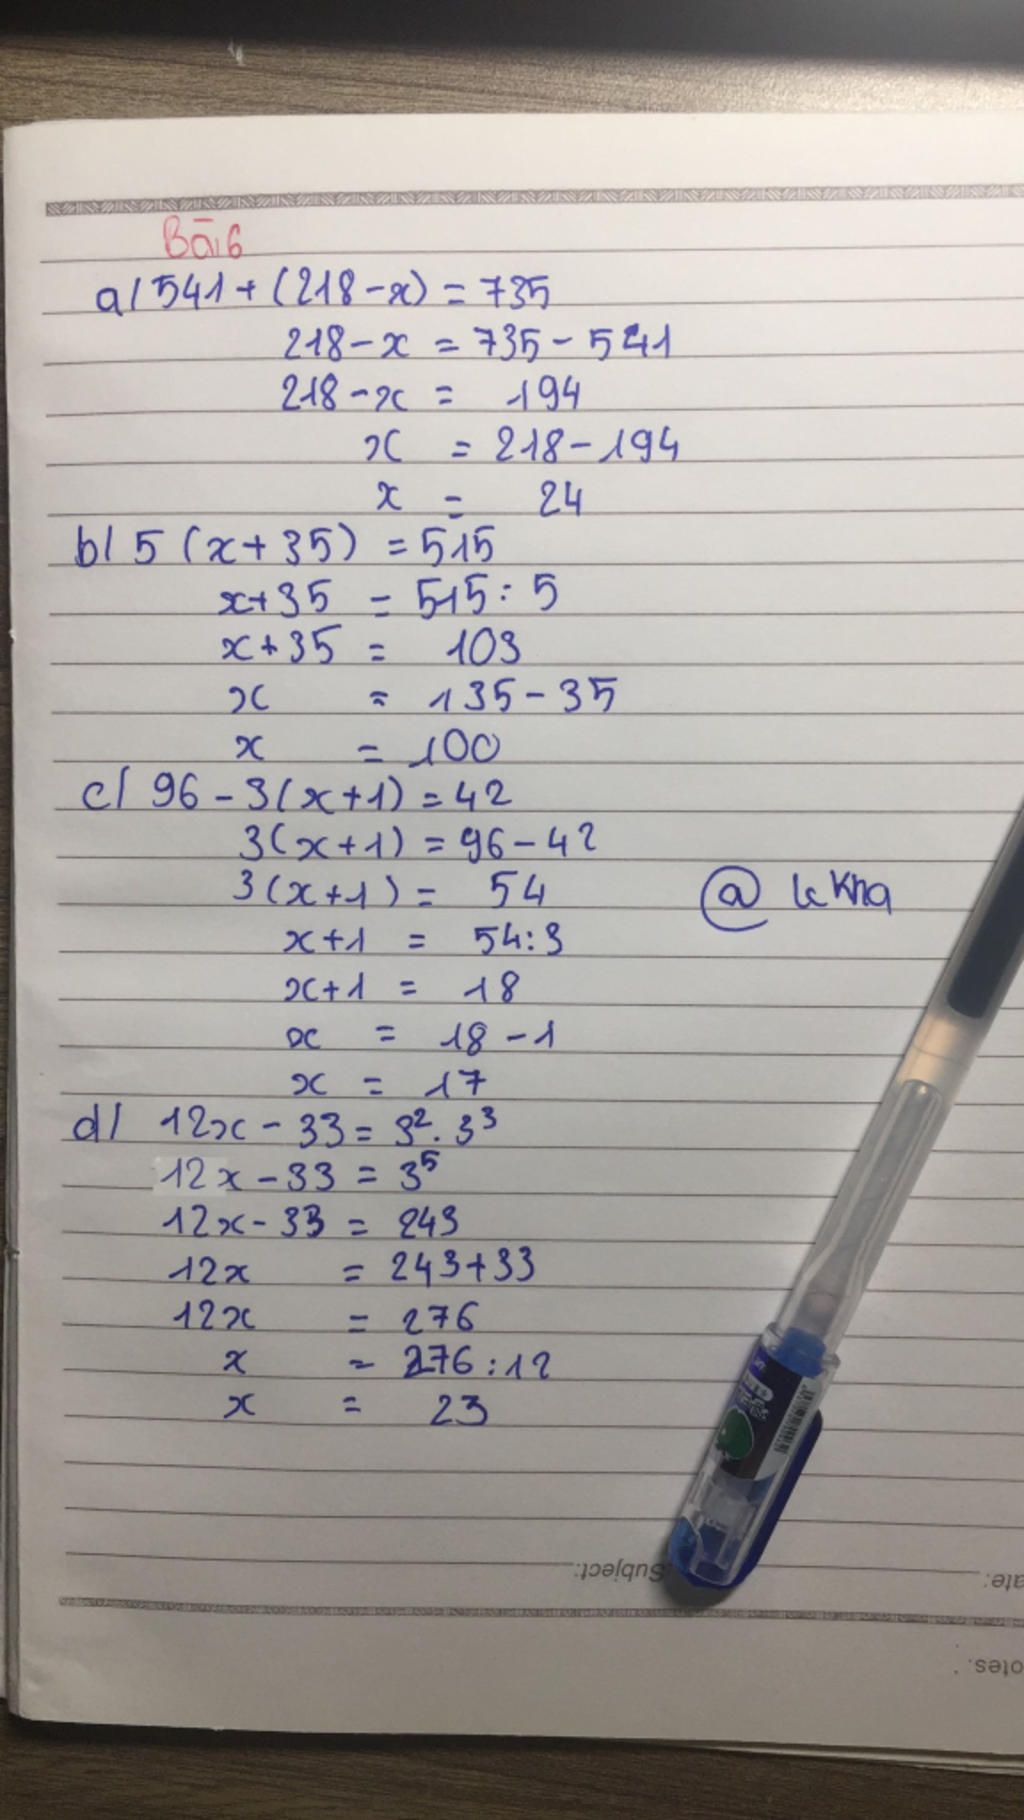 Bài 6
a/ 541 + (218 - x) = 735
218 - x = 735 - 541
218 - x = 194
x = 218 - 194
x = 24
b/ 5 (x + 35) = 515
x + 35 = 515 : 5
x + 35 = 103
x = 135 - 35
x = 100
c/ 96 - 3(x + 1) = 42
3(x + 1) = 96 - 42
3(x + 1) = 54
x + 1 = 54 : 3
x + 1 = 18
x = 18 - 1
x = 17
d/ 12x - 33 = 3² . 3³
12x - 33 = 3⁵
12x - 33 = 243
12x = 243 + 33
12x = 276
x = 276 : 12
x = 23
Subject: